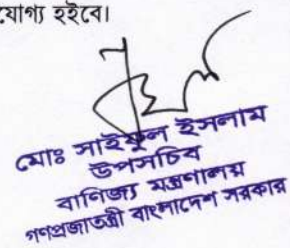 যোগ্য হইবে।
মোঃ সাইফুল ইসলাম
উপসচিব
বাণিজ্য মন্ত্রণালয়
গণপ্রজাতন্ত্রী বাংলাদেশ সরকার